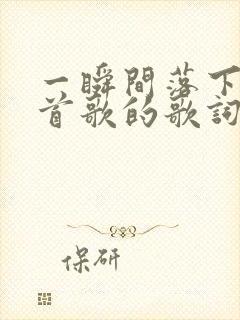 一瞬間落下
首歌的歌詞
保研